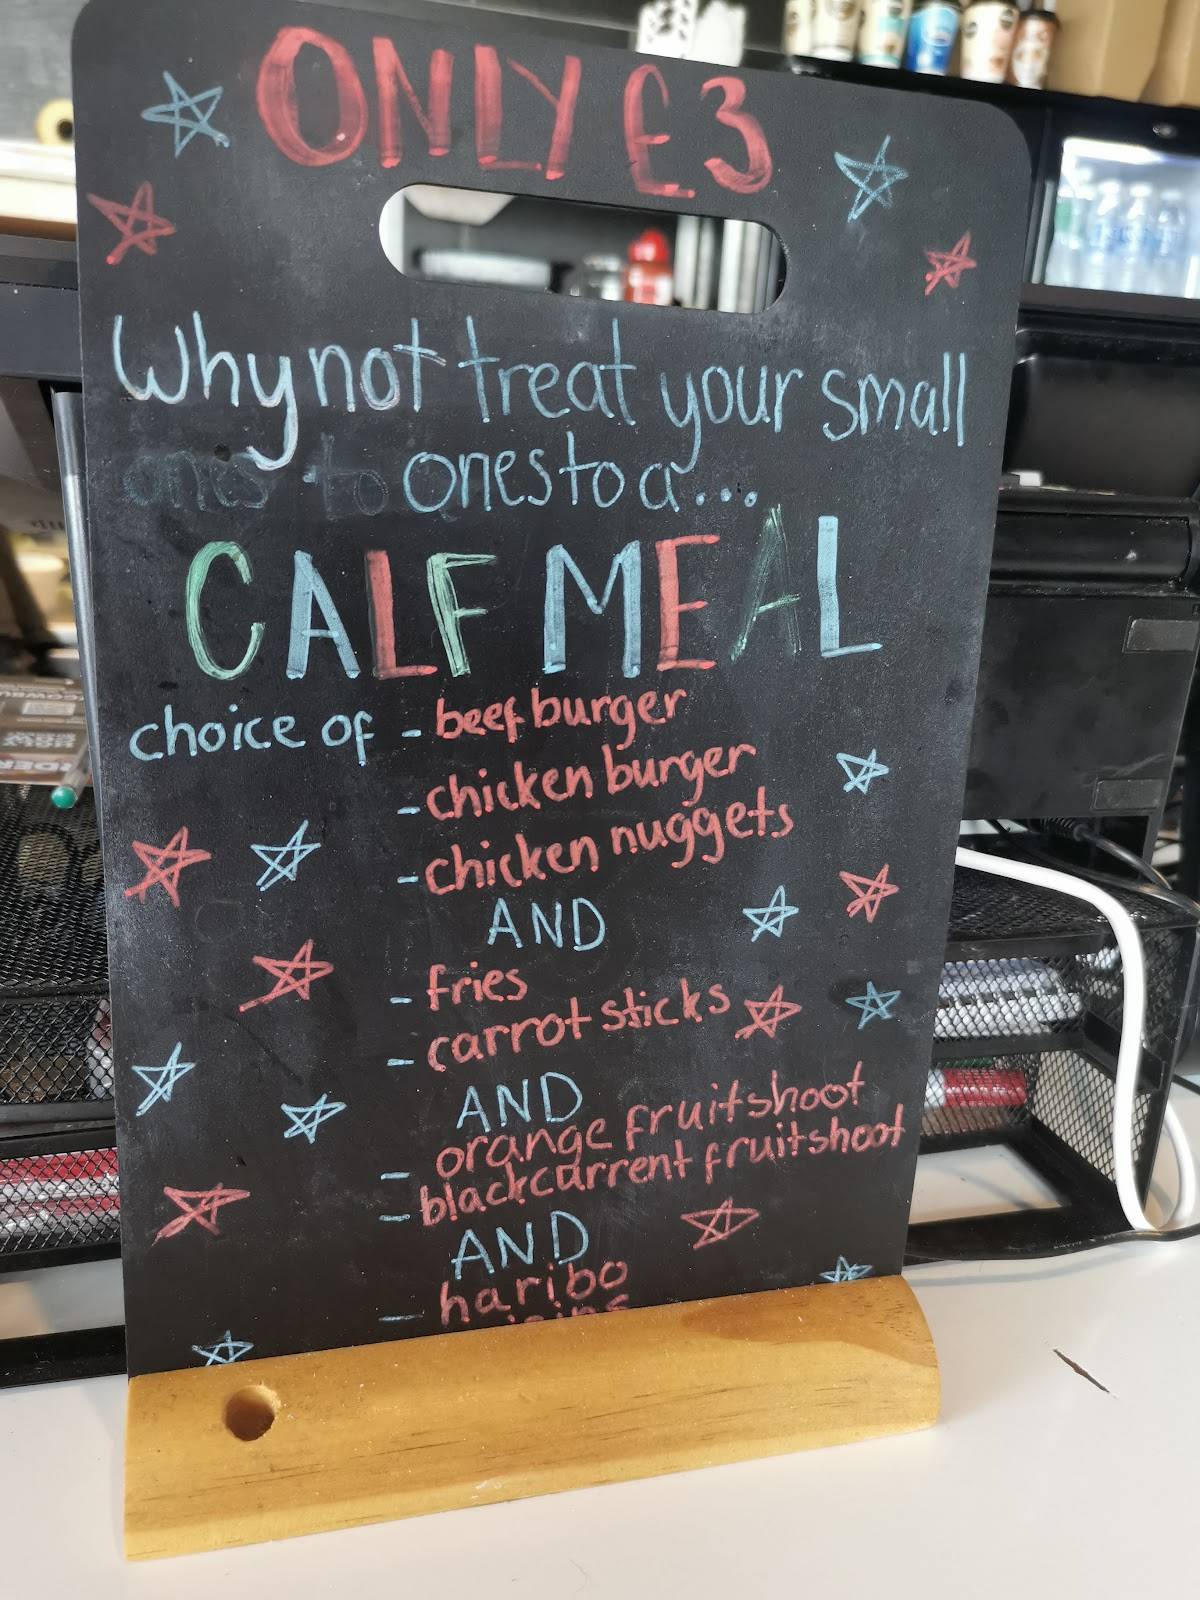 ONLY £3
Why not treat your small
ones to ones to a...
CALF MEAL
choice of - beef burger
- chicken burger
- chicken nuggets
AND
- fries
- carrot sticks
AND
- orange fruitshoot
- blackcurrent fruitshoot
AND
- haribo